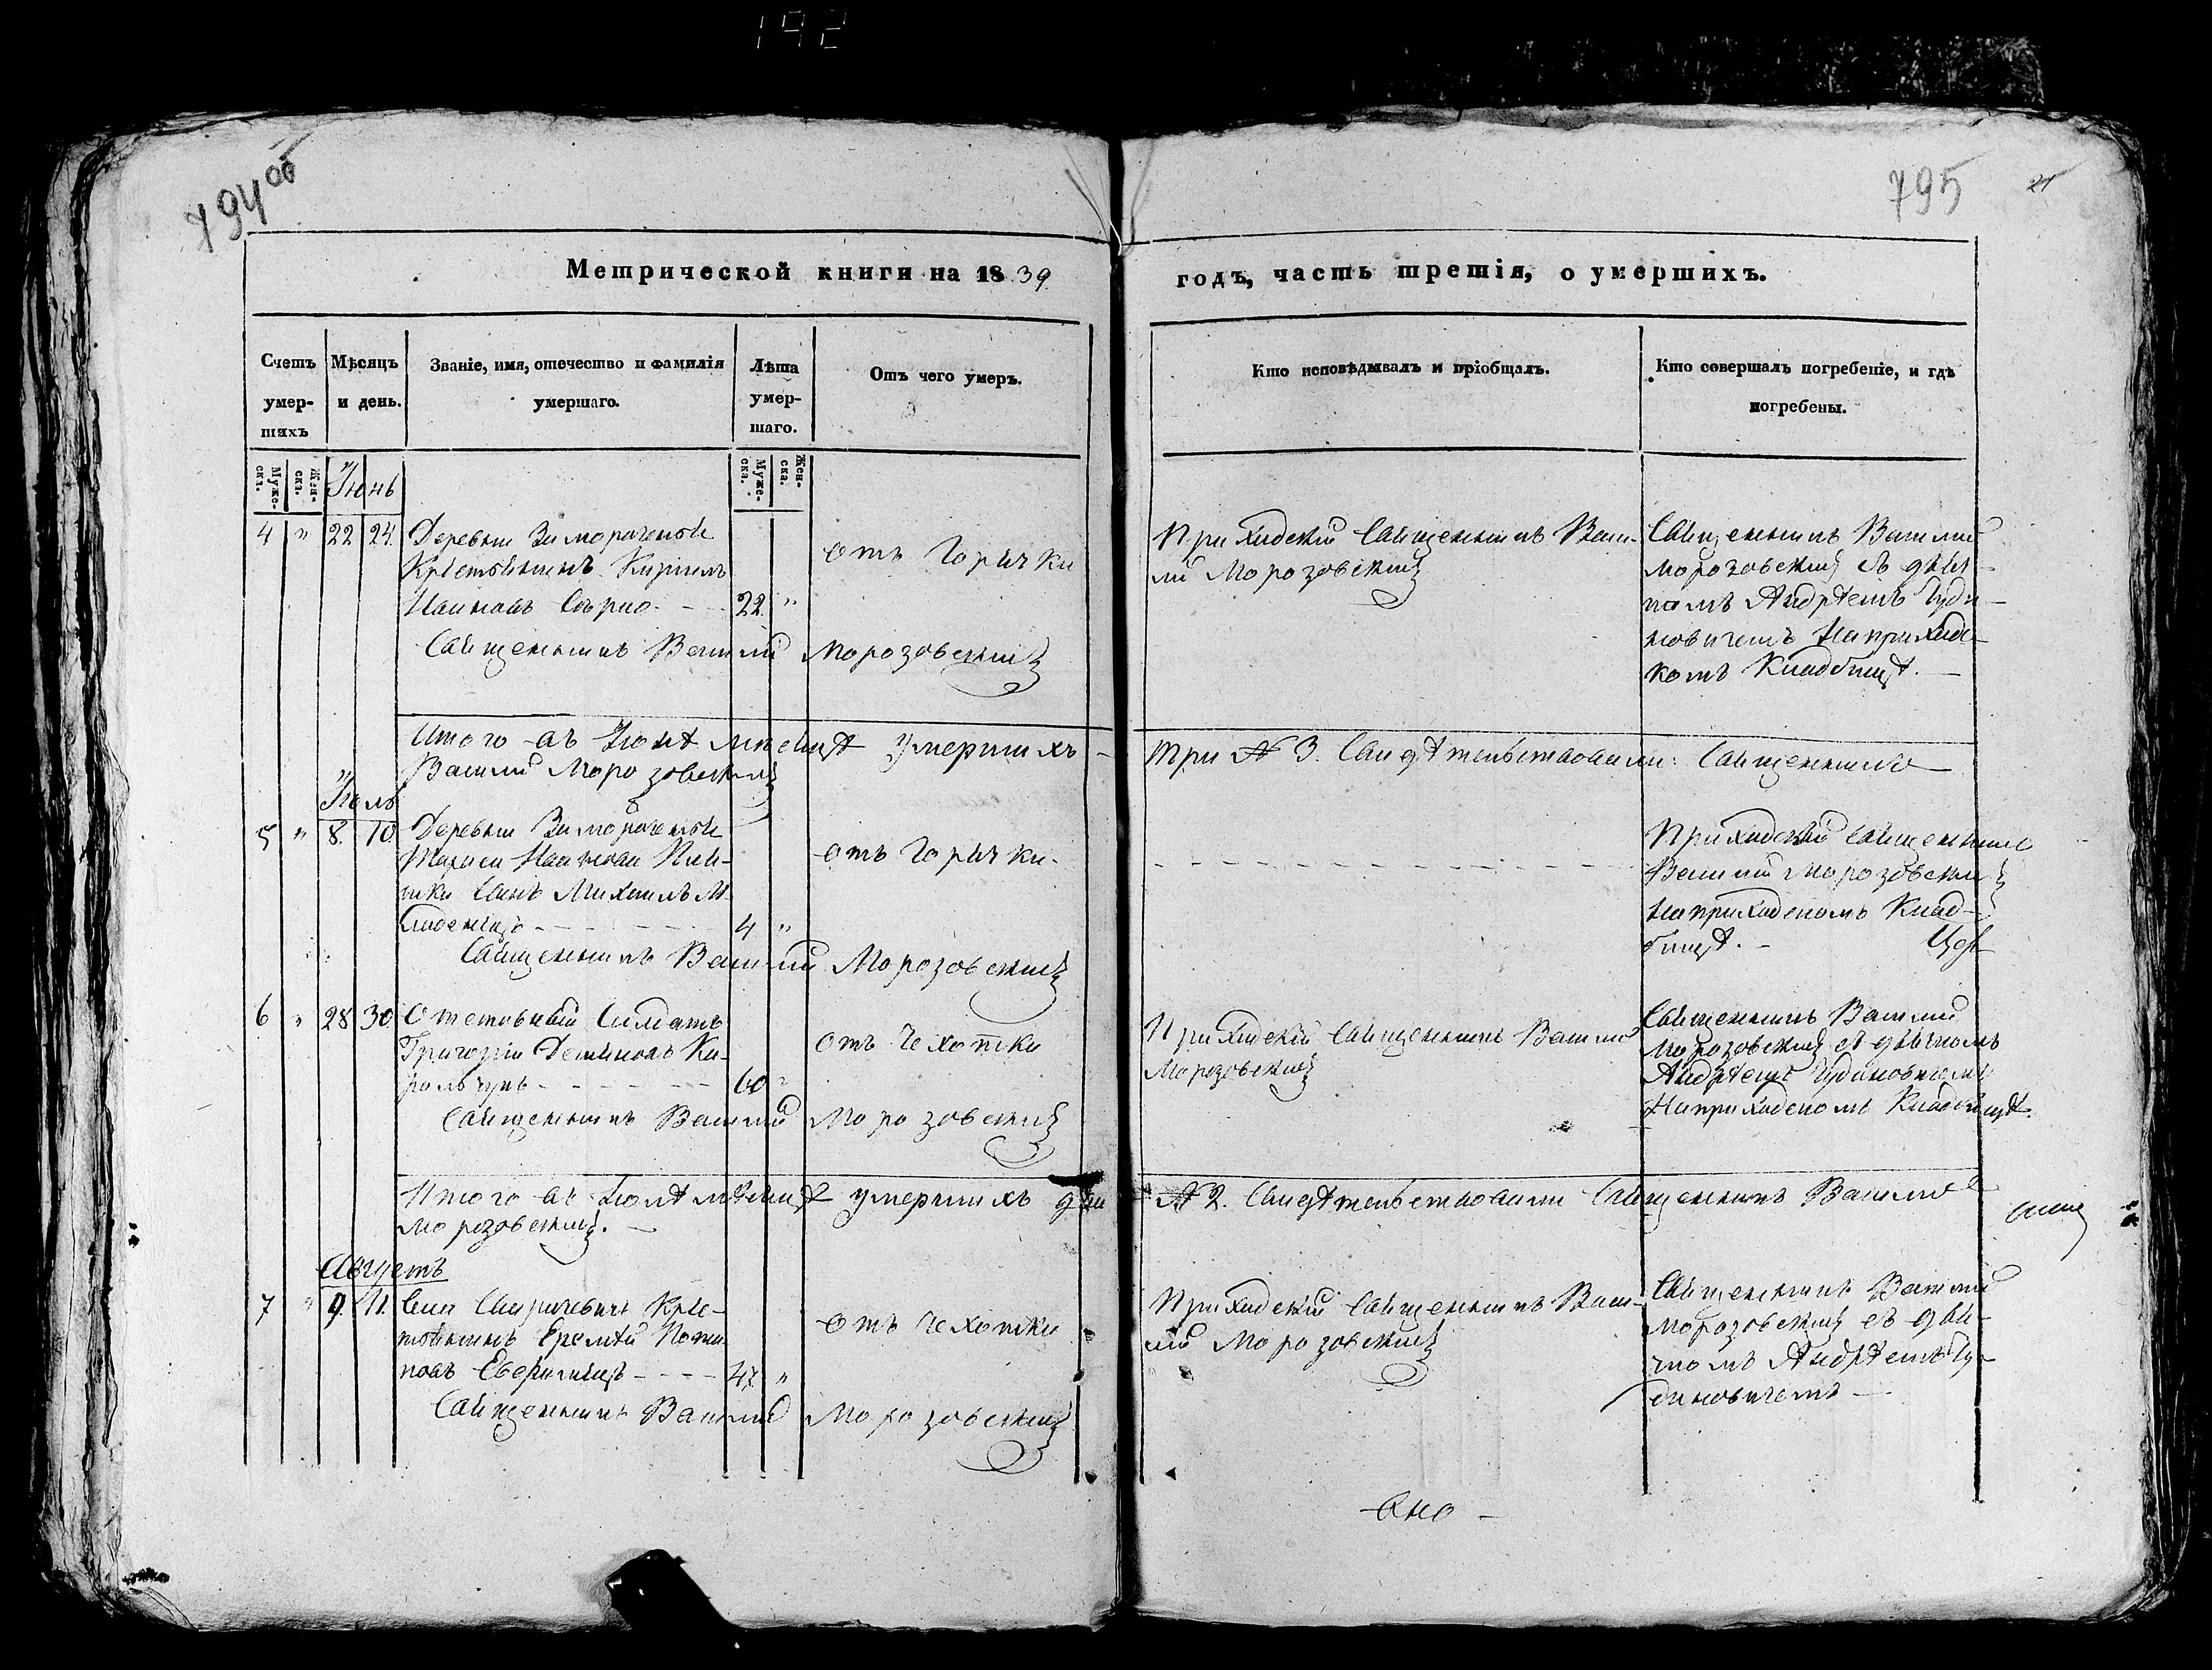 192
794 об
795
21
Метрической книги на 1839.
годъ, часть третія, о умершихъ.
Счетъ умер-шихъ
Мѣсяцъ и день.
Званіе, имя, отечество и фамилія умершаго.
Лѣта умер-шаго.
Отъ чего умеръ.
Кто исповѣдывалъ и пріобщалъ.
Кто совершалъ погребеніе, и гдѣ погребены.
Муже-ска.
Жен-ска.
Муже-ска.
Жен-ска.
Іюнь
4 " 22 24. Деревни
Кирилъ
22 "
Священникъ Василій Морозовскій
отъ Горячки
Приходскій Священникъ Васи-
лій Морозовскій
Священникъ Василій
Морозовскій съ дьяч-
комъ Андрѣемъ Чуди-
новичемъ на приход-
комъ Кладбищѣ. —
Итого въ Іюнѣ мѣсяцѣ умершихъ -
три № 3. Свидѣтельствовали: Священникъ
Василій Морозовскій
Іюль
5 " 8. 10. Деревни
сынъ Михаилъ М-
ладенецъ - - - 4 "
Священникъ Василій Морозовскій
отъ Горячки.
- - - - - - - - - -
Приходскій Священникъ
Василій Морозовскій
на приходскомъ Клад-
бищѣ. -
6 " 28 30. Отставный Солдатъ
Григорій
- - - 60 "
Священникъ Василій Морозовскій
отъ Чехотки
Приходскій Священникъ Василій
Морозовскій
Священникъ Василій
Морозовскій съ дьячкомъ
Андрѣемъ Чудиновичемъ
на приходскомъ Кладбищѣ.
Итого въ Іюлѣ мѣсяцѣ умершихъ два
№ 2. Свидѣтельствовали Священникъ Василій
Морозовскій. —
Августъ
7 " 9. 11. Села Кре-
стьянинъ Еремѣй
- - - - 47 "
Священникъ Василій Морозовскій
отъ Чехотки
Приходскій Священникъ Васи-
лій Морозовскій
Священникъ Василій
Морозовскій съ дья-
чкомъ Андрѣемъ Чу-
диновичемъ —